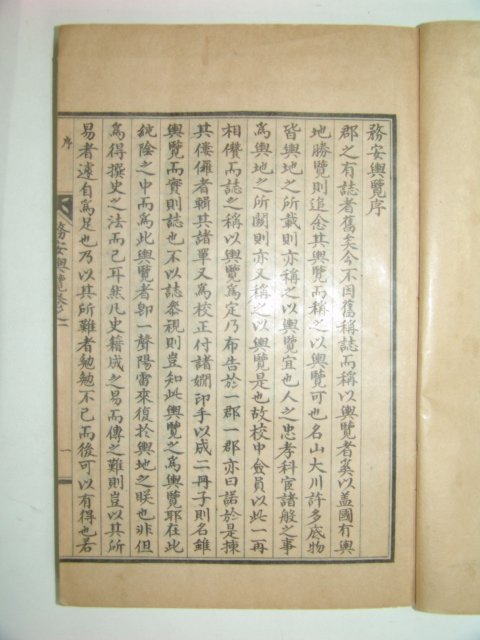 務安輿覽序
郡之有誌者舊矣今不因舊稱誌而稱以輿覽者奚以盖國有輿
地勝覽則追念其輿覽而稱之以輿覽可也名山大川許多底物
皆輿地之所載則亦稱之以輿覽宜也人之忠孝科宦諸般之事
爲輿地之所関則亦又稱之以輿覽是也故校中僉員以此一再
相儧而誌之稱以輿覽爲定乃布告於一郡一郡亦曰諾於是揀
其僂儸者輯其諸單又爲校正付諸嫺印手以成二冊子則名雖
輿覽而實則誌也不以誌叅視則豈知此輿覽之爲輿覽耶在此
純陰之中而爲此輿覽者卽一聲陽雷來復於輿地之睽也非但
爲得撰史之法而已耳然凡史籍成之易而傳之難則豈以其所
易者遽自爲足也乃以其所難者勉勉不已而後可以有得也若
序
務安輿覽卷之一
一